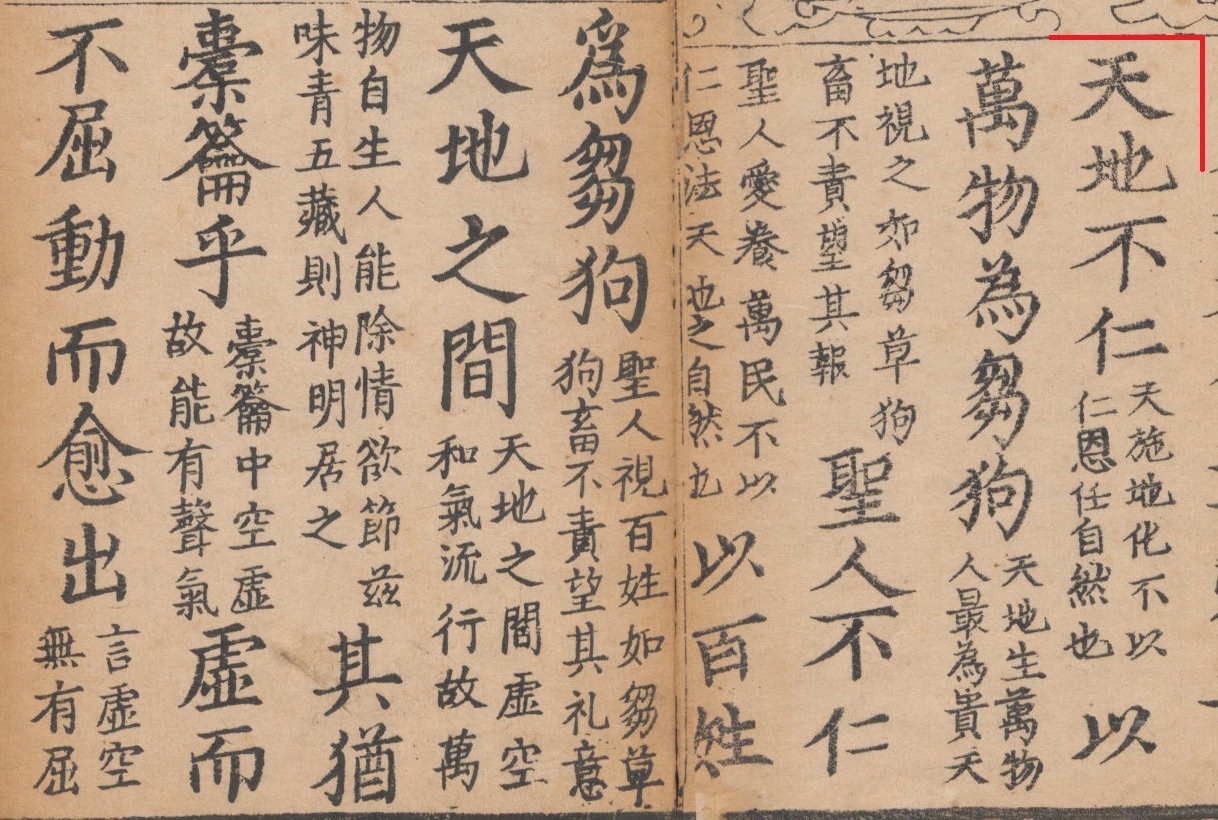 天地不仁
天施地化不以
仁恩任自然也
以
萬物為芻狗
天地生萬物
人最為貴天
地視之如芻草狗
畜不責望其報
聖人不仁
聖人愛養萬民不以
仁恩法天地之自然也
以百姓
爲芻狗
聖人視百姓如芻草
狗畜不責望其礼意
天地之間
天地之間虛空
和氣流行故萬
物自生人能除情欲節茲
味青五藏則神明居之
其猶
橐籥乎
橐籥中空虛
故能有聲氣
虛而
不屈動而愈出
言虛空
無有屈